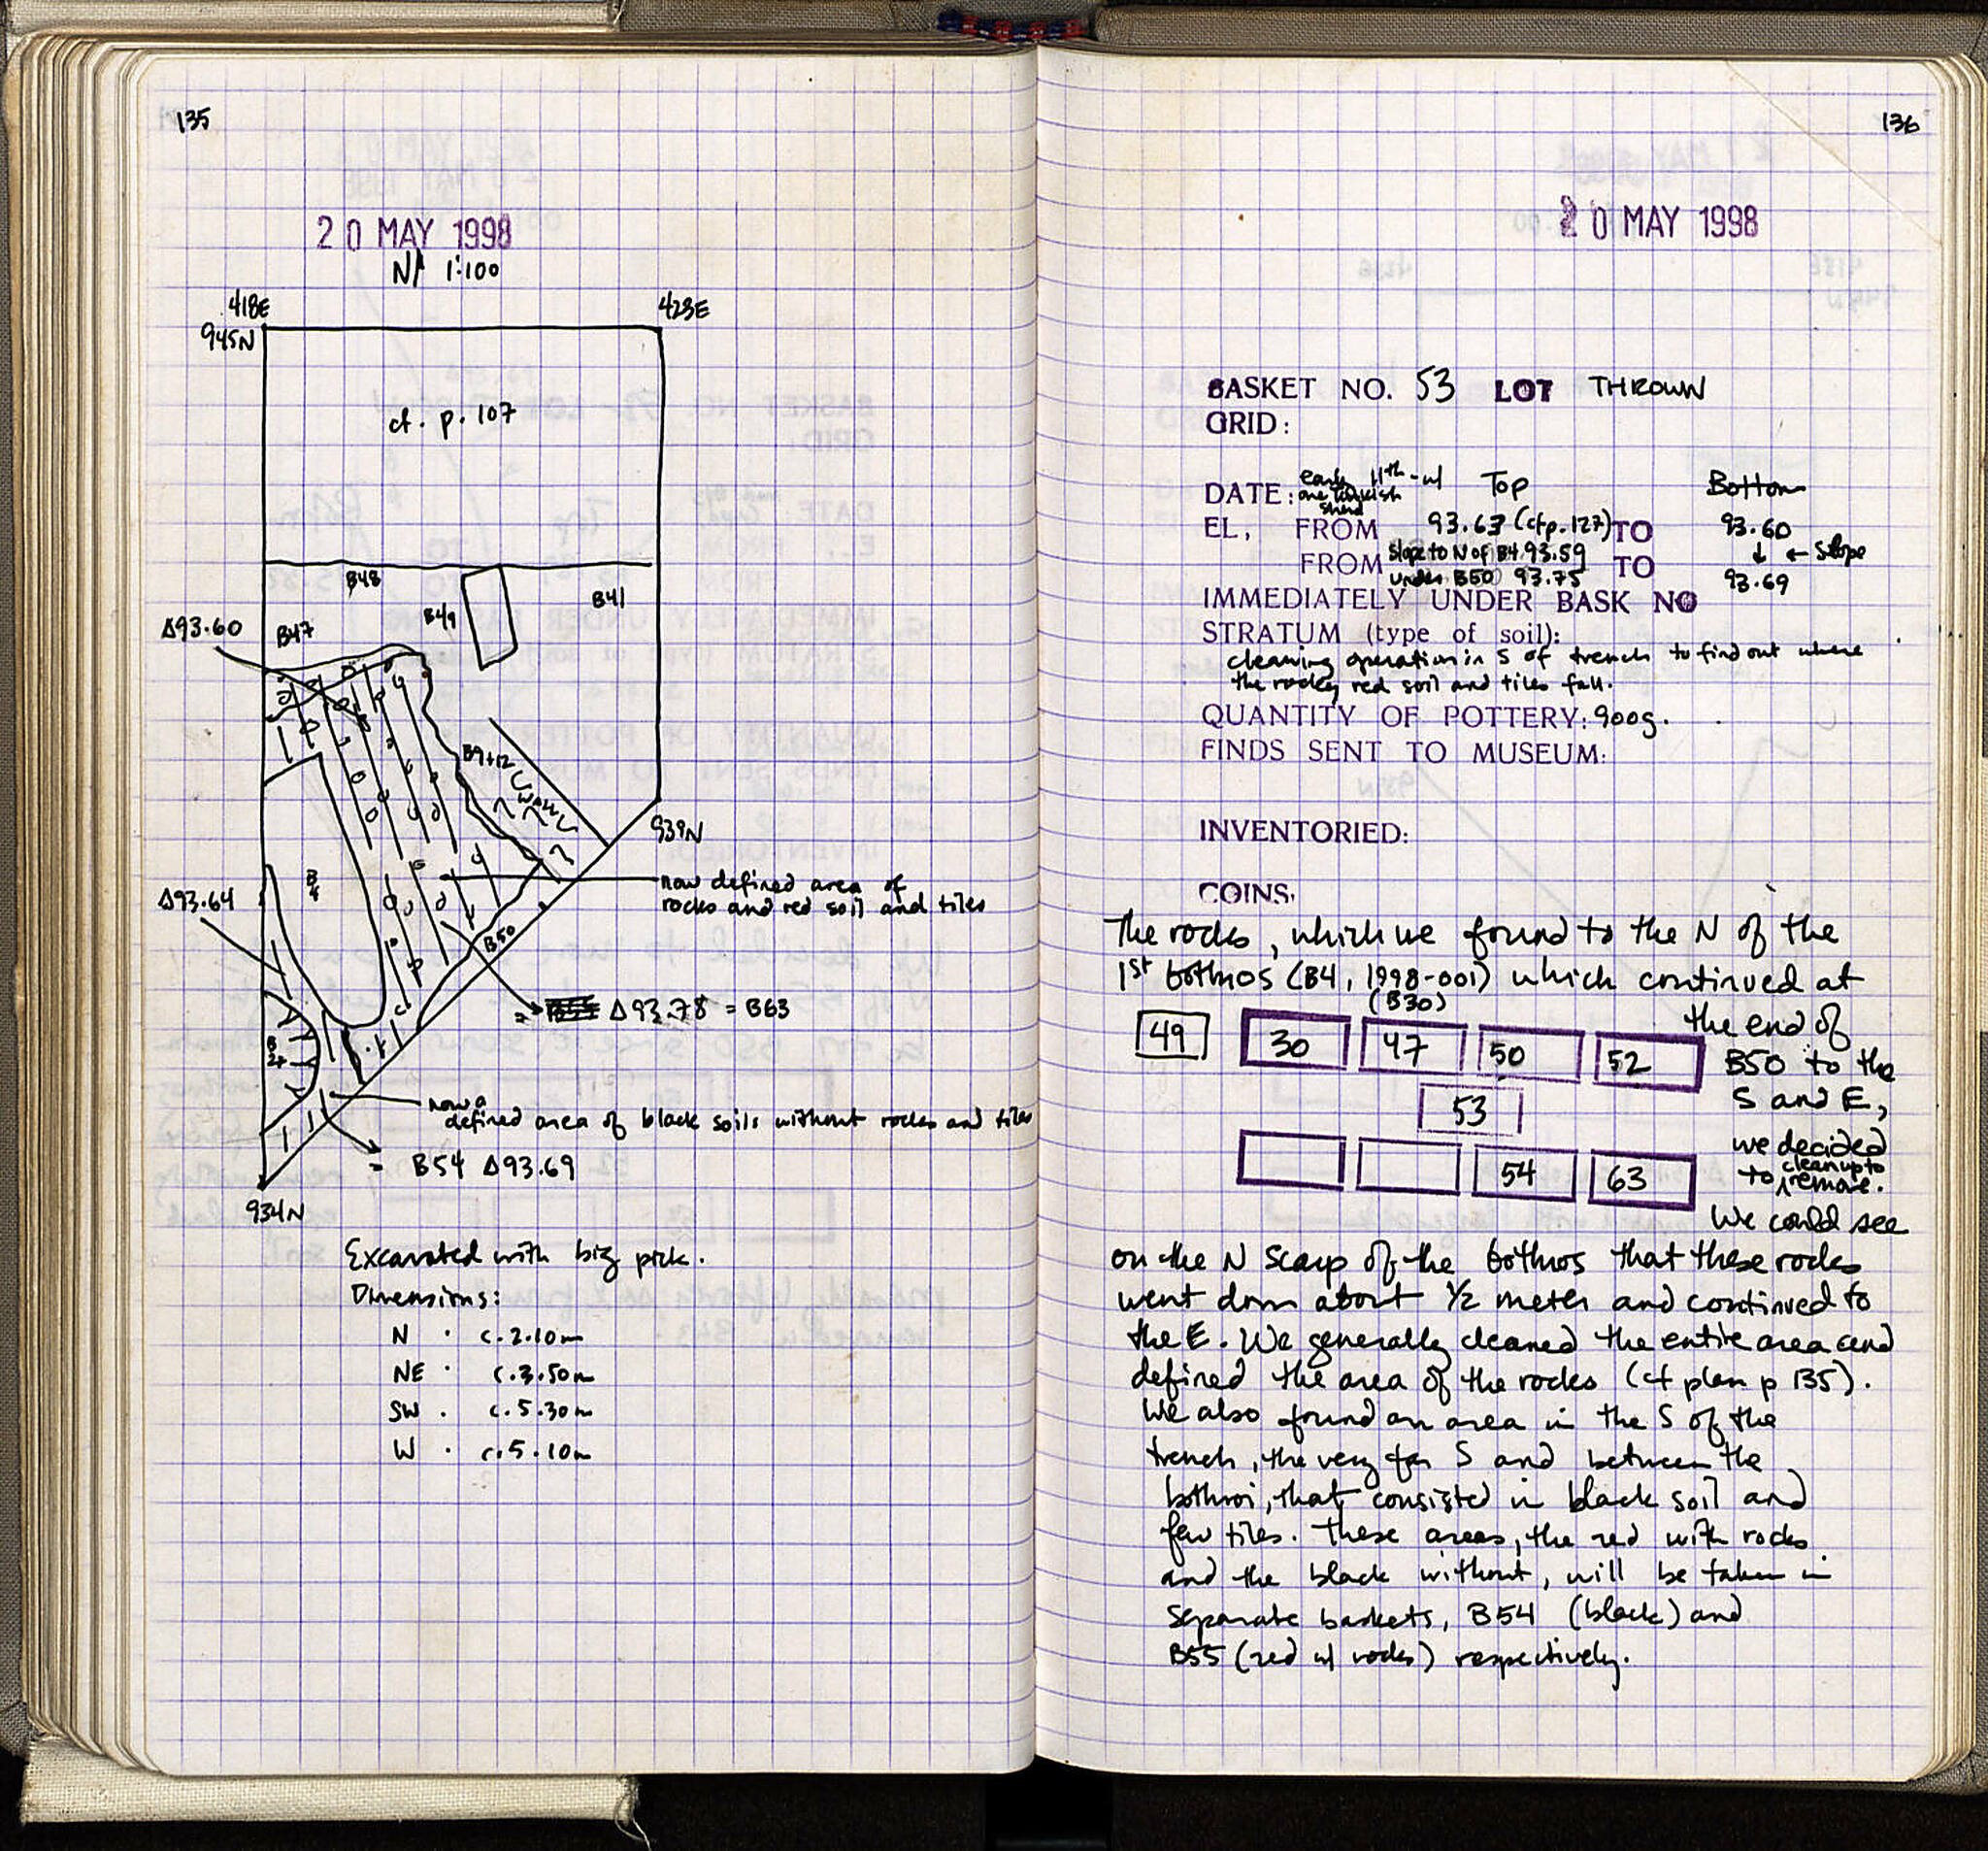 135
20 MAY 1998
N 1:100
418E
423E
945N
cf. p. 107
B48
B49
B41
Δ93.60
B47
B9+12 (WALL)
939N
B4
now defined area of
rocks and red soil and tiles
Δ93.64
B50
= Δ93.78 = B63
B24
now a
defined area of black soils without rocks and tiles
= B54 Δ93.69
934N
Excavated with big pick.
Dimensions:
N · c. 2.10m
NE · c. 3.50m
SW · c. 5.30m
W · c. 5.10m
136
20 MAY 1998
BASKET NO. 53 LOT THROWN
GRID:
early 11th - w/ Top Bottom
DATE: one Turkish
sherd
EL, FROM 93.63 (cf p. 127) TO 93.60
slope to N of B4 93.59 ↓ ← Slope
FROM under B50 93.75 TO 93.69
IMMEDIATELY UNDER BASK NO
STRATUM (type of soil):
cleaning operation in S of trench to find out where
the rocky red soil and tiles fall.
QUANTITY OF POTTERY: 900g.
FINDS SENT TO MUSEUM:
INVENTORIED:
COINS,
The rocks, which we found to the N of the
1st bothros (B4, 1998-001) which continued at
(B30)
the end of
49 30 47 50 52
B50 to the
53
S and E,
we decided
54 63
to clean up to remove.
We could see
on the N scarp of the bothros that these rocks
went down about 1/2 meter and continued to
the E. We generally cleaned the entire area and
defined the area of the rocks (cf plan p 135).
We also found an area in the S of the
trench, the very far S and between the
bothroi, that consisted in black soil and
few tiles. These areas, the red with rocks
and the black without, will be taken in
separate baskets, B54 (black) and
B55 (red w/ rocks) respectively.